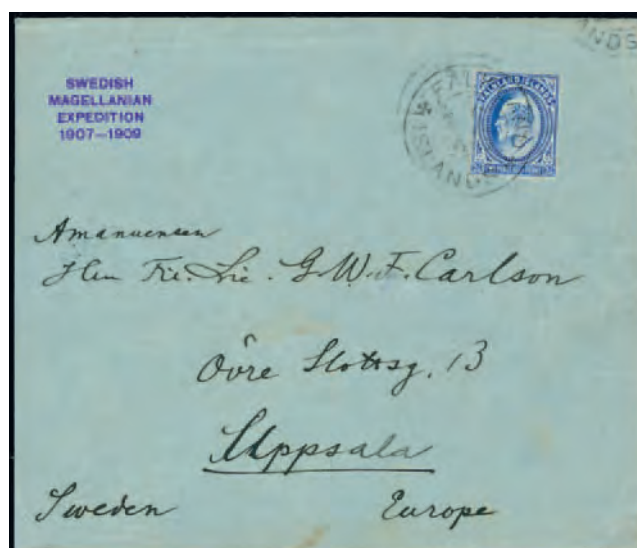 SWEDISH
MAGELLANIAN
EXPEDITION
1907–1909
FALKLAND ISLANDS
ISLANDS
NDS
Amanuensen
Herr Fil. Lic. G. W. F. Carlson
Övre Slottsg. 13
Uppsala
Sweden Europe